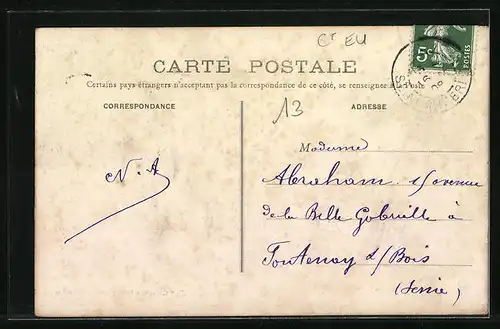 Cᵀ EU
5c
POSTES
CARTE POSTALE
Certains pays étrangers n'acceptant pas la correspondance de ce côté, se renseigner à la Poste
CORRESPONDANCE
ADRESSE
13
Madame
N. A
Abraham avenue
de la Belle Gabrielle à
Fontenay s/ Bois
(Seine)